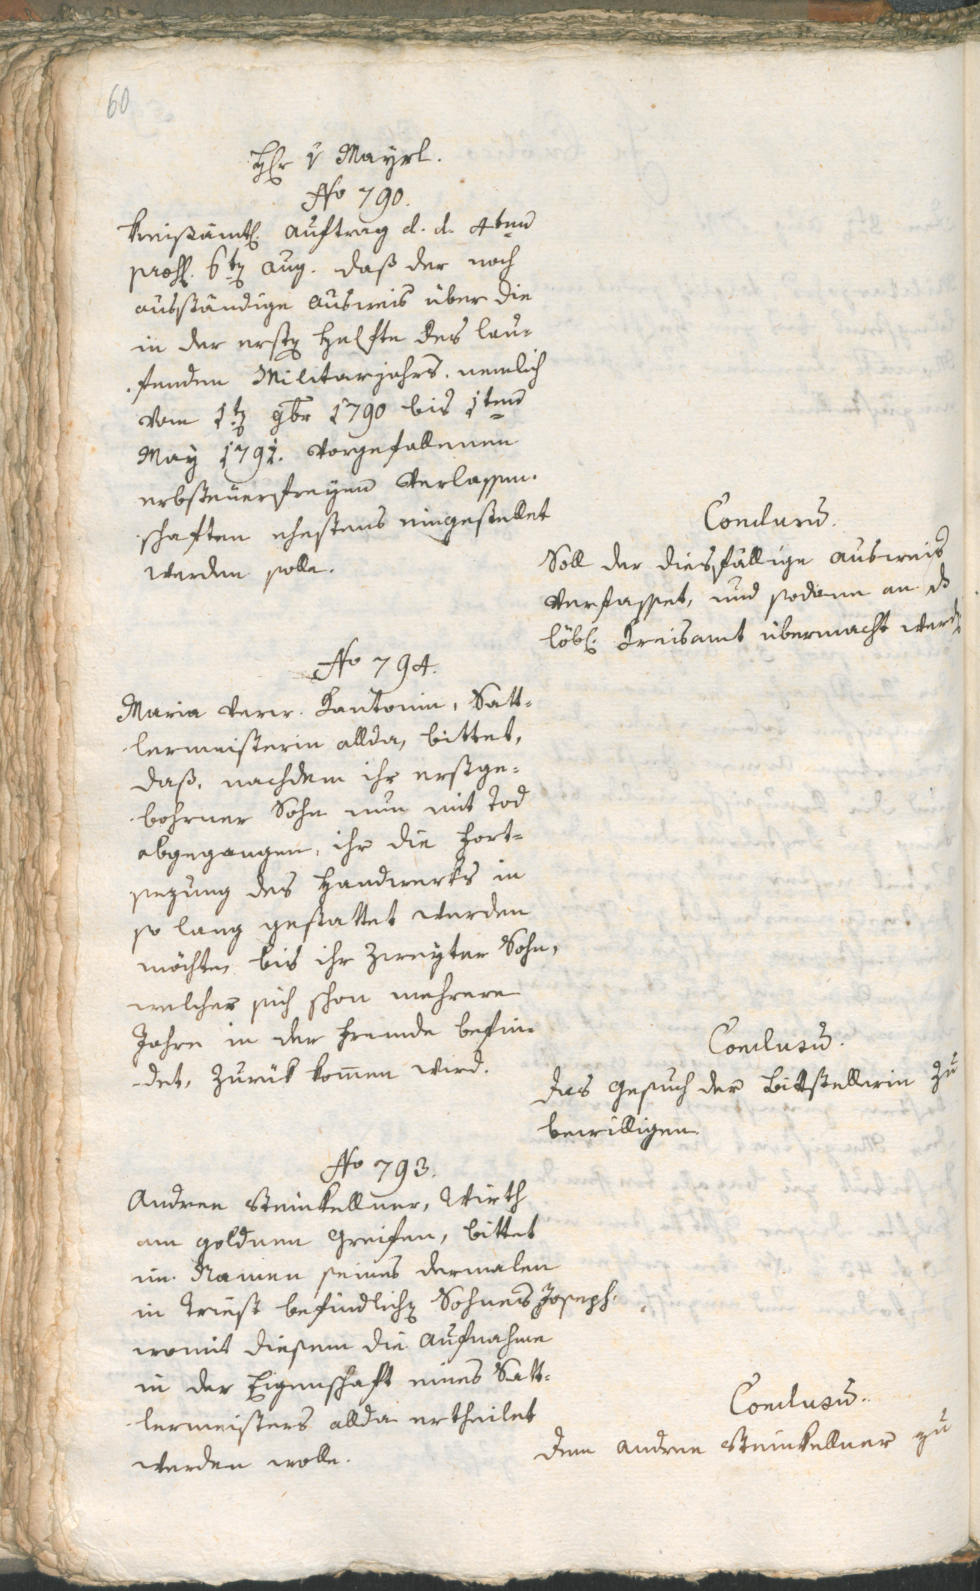 60
Hr v Mayrl.
No 790.
Kreisämtl. Auftrag d. d. 4ten
praes. 6ten Aug. daß der noch
ausständige Ausweis über die
in der ersten Helfte des lau-
fenden Militarjahrs. nemlich
vom 1ten 9br 1790 bis 1ten
May 1791. vorgefallenen
erbsteuerfreyen Verlassen-
schaften ehestens eingestellet
werden solle.
Conclusum.
Soll der diesfällige Ausweis
verfasset, und sodann an das
löbl. Kreisamt übermacht werden
No 794.
Maria verw. Kantonin, Satt-
lermeisterin allda, bittet,
daß, nachdem ihr erstge-
bohrner Sohn nun mit Tod
abgegangen, ihr die Fort-
sezung des Handwerks in
so lang gestattet werden
möchte, bis ihr zweyter Sohn,
welcher sich schon mehrere
Jahre in der Fremde befin-
det, zurük kommen wird.
Conclusum.
Das Gesuch der Bittstellerin zu
bewilligen
No 793.
Andree Steinkellner, Wirth
am goldnen Greifen, bittet
im Namen seines dermalen
in Triest befindlichen Sohnes Joseph,
womit diesem die Aufnahme
in der Eigenschaft eines Satt-
lermeisters allda ertheilet
werden wolle.
Conclusum.
Dem Andree Steinkellner zu